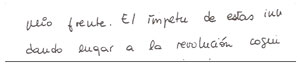 frente. El ímpetu de estas inu
dando lugar a la revolución cogni